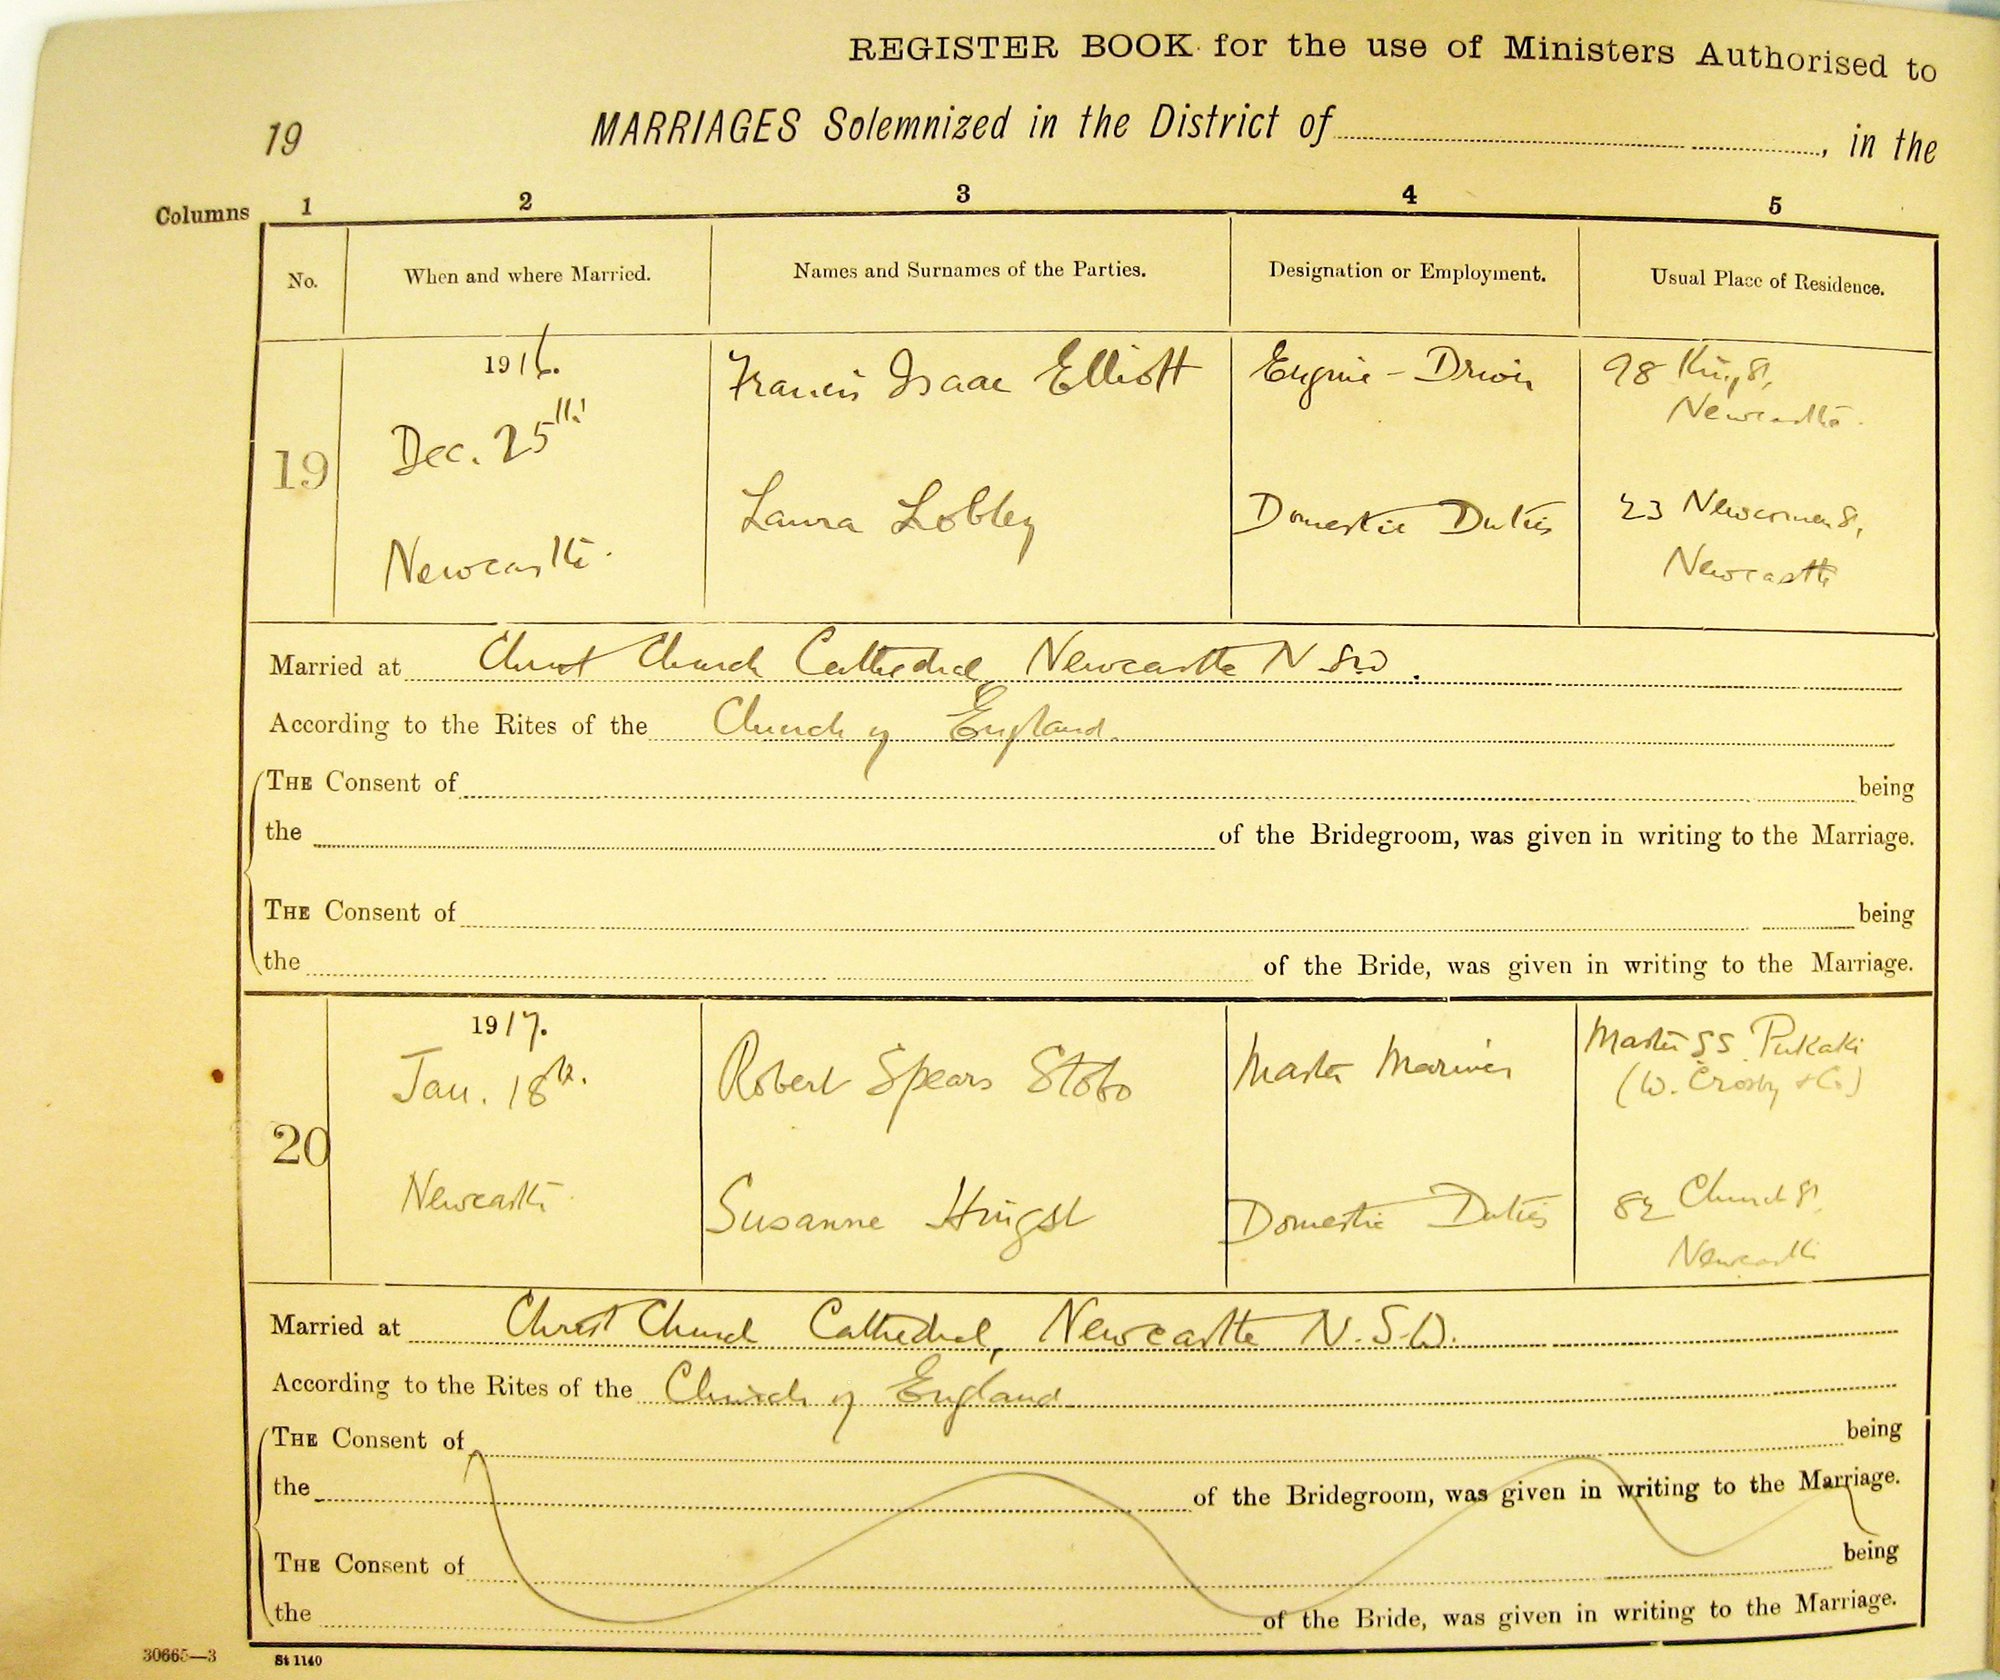 REGISTER BOOK for the use of Ministers Authorised to
19
MARRIAGES Solemnized in the District of , in the
Columns 1 2 3 4 5
No. When and where Married. Names and Surnames of the Parties. Designation or Employment. Usual Place of Residence.
1916.
Francis Isaac Elliott
Engine-Driver
98 King St,
Newcastle.
19
Dec. 25th
Laura Lobley
Domestic Duties
23 Newcomen St,
Newcastle
Newcastle.
Married at Christ Church Cathedral, Newcastle NSW.
According to the Rites of the Church of England.
THE Consent of being
the of the Bridegroom, was given in writing to the Marriage.
THE Consent of being
the of the Bride, was given in writing to the Marriage.
1917.
Jan. 18th.
Robert Spears Stobo
Master Mariner
Master SS Pukaki
(W. Crosby & Co)
20
Newcastle
Susanne Hingst
Domestic Duties
82 Church St.
Newcastle
Married at Christ Church Cathedral, Newcastle N.S.W.
According to the Rites of the Church of England
THE Consent of being
the of the Bridegroom, was given in writing to the Marriage.
THE Consent of being
the of the Bride, was given in writing to the Marriage.
30665—3 St 1140